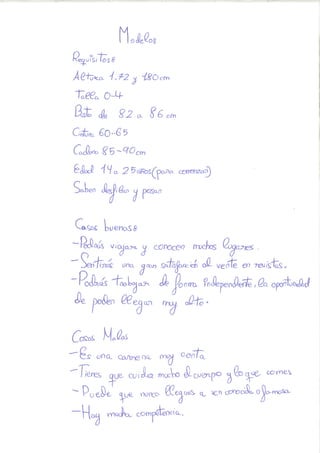 Modelos
Requisitos:
Altura 1.72 y 180cm
Talla 0-4
Busto de 82 a 86 cm
Cintura 60-65
Cadera 85-90cm
Edad 14 a 25 años (para comenzar)
Saber desfilar y posar
Cosas buenas:
-Podrás viajar y conocer muchos lugares.
-Sentirás una gran satisfacción al verte en revistas.
-Podrás trabajar de forma independiente, la oportunidad
de poder llegar muy alto.
Cosas Malas
-Es una carrera muy corta
-Tienes que cuidar mucho el cuerpo y lo que comes
-Puede que nunca llegues a ser conocida o famosa
-Hay mucha competencia.